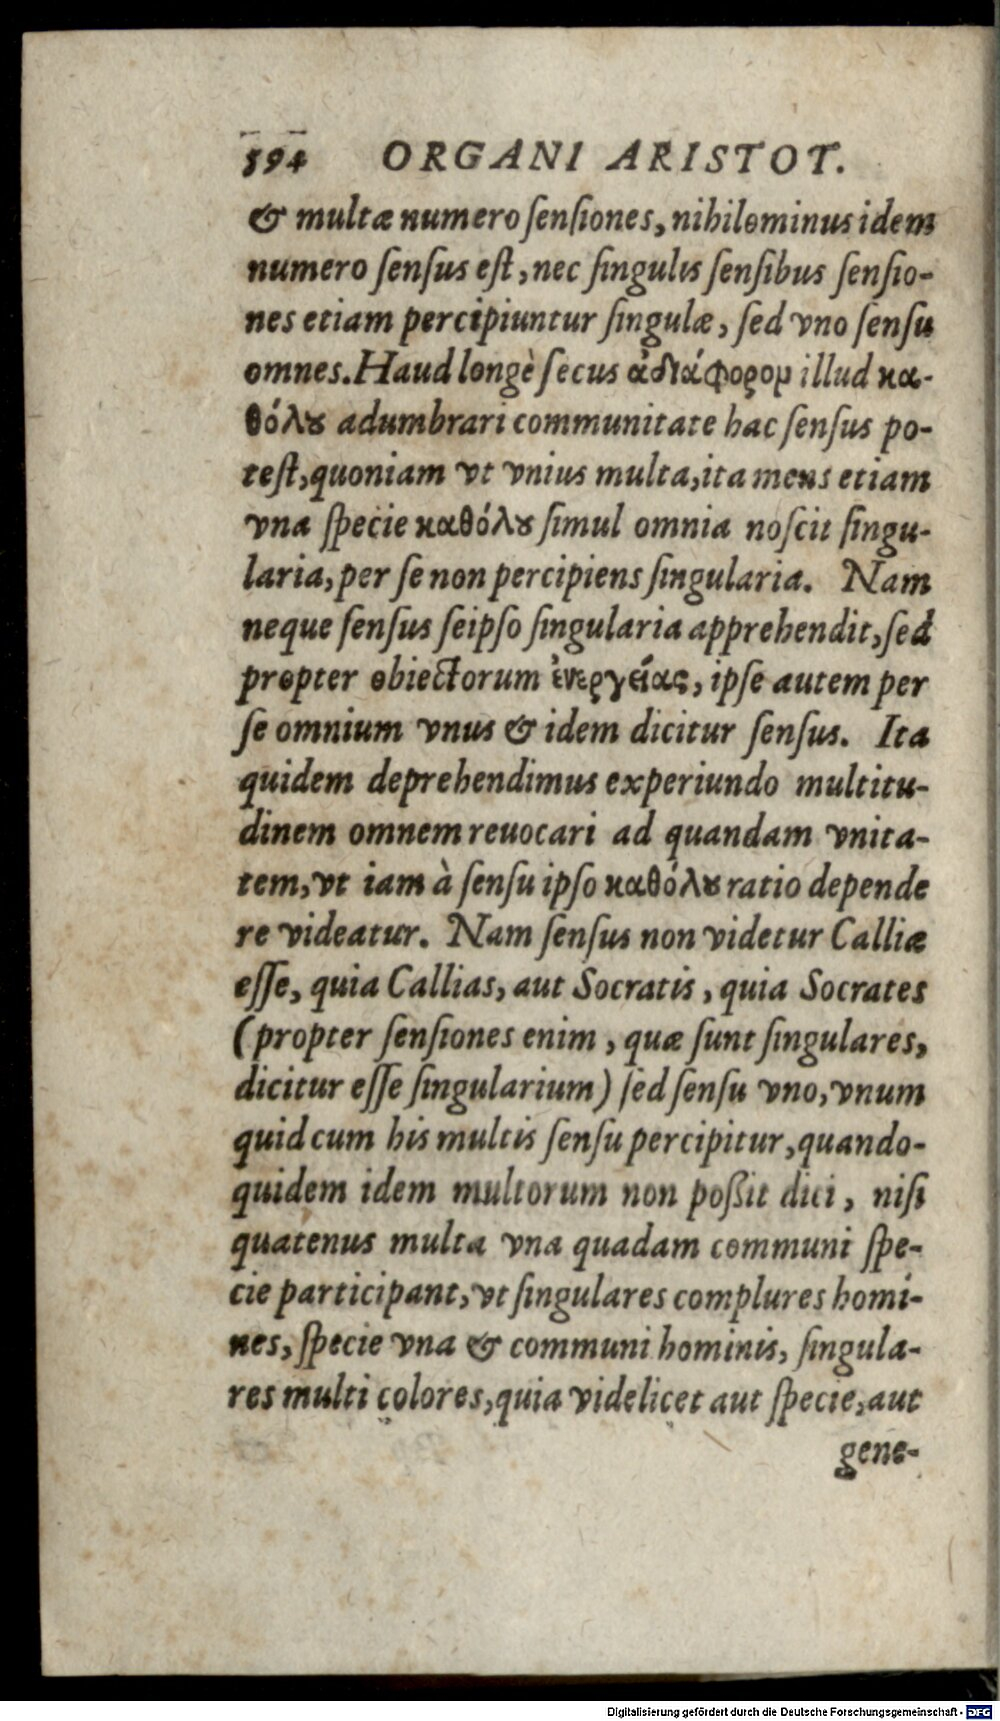 594 ORGANI ARISTOT.
& multæ numero ſenſiones, nihilominus idem
numero ſenſus eſt, nec ſingulis ſenſibus ſenſio-
nes etiam percipiuntur ſingulæ, ſed vno ſenſu
omnes. Haud longè ſecus ἀδιάφορομ illud κα-
θόλȣ adumbrari communitate hac ſenſus po-
teſt, quoniam vt vnius multa, ita mens etiam
vna ſpecie καθόλȣ ſimul omnia noſcit ſingu-
laria, per ſe non percipiens ſingularia. Nam
neque ſenſus ſeipſo ſingularia apprehendit, ſed
propter obiectorum ἐνεργείας, ipſe autem per
ſe omnium vnus & idem dicitur ſenſus. Ita
quidem deprehendimus experiundo multitu-
dinem omnem reuocari ad quandam vnita-
tem, vt iam à ſenſu ipſo καθόλȣ ratio depende
re videatur. Nam ſenſus non videtur Calliæ
eſſe, quia Callias, aut Socratis, quia Socrates
(propter ſenſiones enim, quæ ſunt ſingulares,
dicitur eſſe ſingularium) ſed ſenſu vno, vnum
quid cum his multis ſenſu percipitur, quando-
quidem idem multorum non poßit dici, niſi
quatenus multa vna quadam communi ſpe-
cie participant, vt ſingulares complures homi-
nes, ſpecie vna & communi hominis, ſingula-
res multi colores, quia videlicet aut ſpecie, aut
gene-
Digitalisierung gefördert durch die Deutsche Forschungsgemeinschaft - DFG